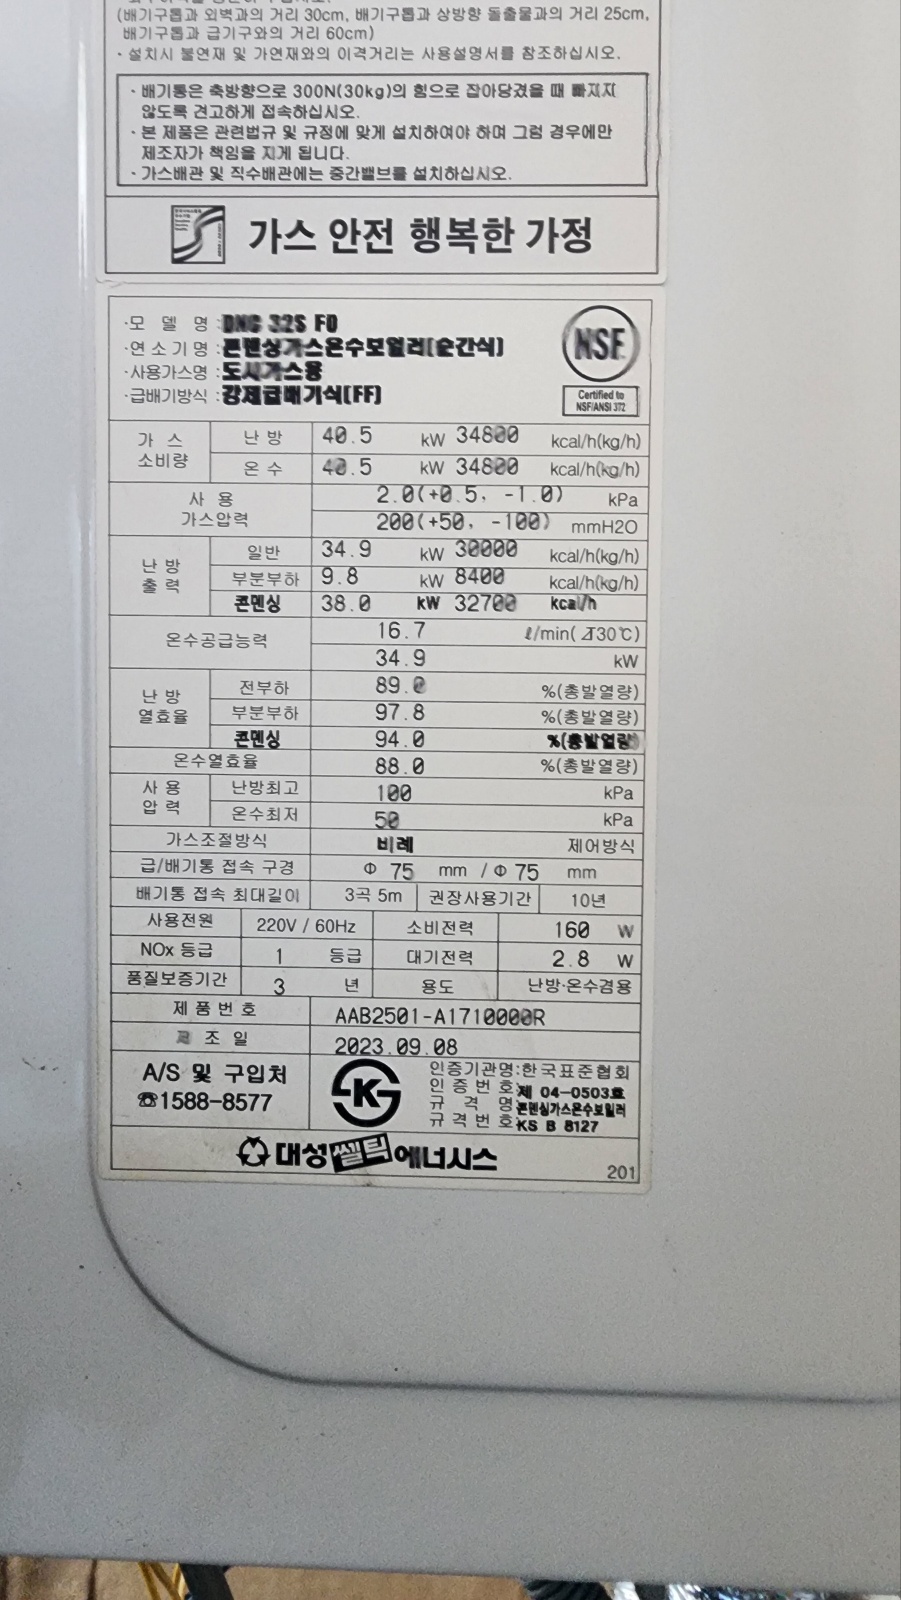 (배기구톱과 외벽과의 거리 30cm, 배기구톱과 상방향 돌출물과의 거리 25cm,
배기구톱과 급기구와의 거리 60cm)
· 설치시 불연재 및 가연재와의 이격거리는 사용설명서를 참조하십시오.
· 배기통은 축방향으로 300N(30kg)의 힘으로 잡아당겼을 때 빠지지
않도록 견고하게 접속하십시오.
· 본 제품은 관련법규 및 규정에 맞게 설치하여야 하며 그럼 경우에만
제조자가 책임을 지게 됩니다.
· 가스배관 및 직수배관에는 중간밸브를 설치하십시오.
가스 안전 행복한 가정
·모 델 명 : DNC 32S FO
·연 소 기 명 : 콘덴싱가스온수보일러(순간식)
·사용가스명 : 도시가스용
·급배기방식 : 강제급배기식(FF)
NSF
Certified to
NSF/ANSI 372
가 스 소비량 난 방 40.5 kW 34800 kcal/h(kg/h)
온 수 40.5 kW 34800 kcal/h(kg/h)
사 용 가스압력 2.0(+0.5, -1.0) kPa
200(+50, -100) mmH2O
난 방 출 력 일반 34.9 kW 30000 kcal/h(kg/h)
부분부하 9.8 kW 8400 kcal/h(kg/h)
콘덴싱 38.0 kW 32700 kcal/h
온수공급능력 16.7 ℓ/min(⊿30℃)
34.9 kW
난 방 열효율 전부하 89.0 %(총발열량)
부분부하 97.8 %(총발열량)
콘덴싱 94.0 %(총발열량)
온수열효율 88.0 %(총발열량)
사 용 압 력 난방최고 100 kPa
온수최저 50 kPa
가스조절방식 비례 제어방식
급/배기통 접속 구경 Φ 75 mm / Φ 75 mm
배기통 접속 최대길이 3곡 5m 권장사용기간 10년
사용전원 220V / 60Hz 소비전력 160 W
NOx 등급 1 등급 대기전력 2.8 W
품질보증기간 3 년 용도 난방·온수겸용
제 품 번 호 AAB2501-A1710000R
조 일 2023.09.08
A/S 및 구입처
☎1588-8577
K
인증기관명:한국표준협회
인 증 번 호:제 04-0503호
규 격 명:콘덴싱가스온수보일러
규 격 번 호:KS B 8127
대성쎌틱에너시스
201